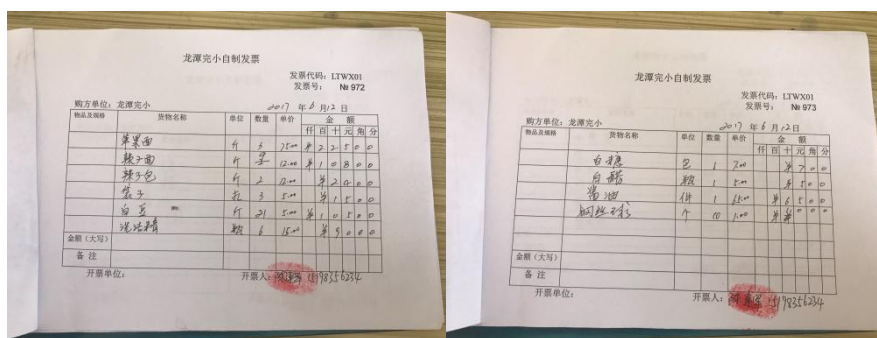 龙潭完小自制发票
发票代码：LTWX01
发票号： № 972
购方单位：龙潭完小 2017 年 6 月 12 日
物品及规格 货物名称 单位 数量 单价 金 额
仟 百 十 元 角 分
草果面 斤 3 75.00 ¥ 2 2 5 0 0
辣子面 斤 9 12.00 ¥ 1 0 8 0 0
辣子包 斤 2 12.00 ¥ 2 4 0 0
袋子 扎 3 5.00 ¥ 1 5 0 0
白豆 斤 21 5.00 ¥ 1 0 5 0 0
洗洁精 瓶 6 15.00 ¥ 9 0 0 0
金额（大写）
备 注
开票单位： 开票人： 15198356234
龙潭完小自制发票
发票代码：LTWX01
发票号： № 973
购方单位：龙潭完小 2017 年 6 月 12 日
物品及规格 货物名称 单位 数量 单价 金 额
仟 百 十 元 角 分
白糖 包 1 7.00 ¥ 7 0 0
白醋 瓶 1 5.00 ¥ 5 0 0
酱油 件 1 65.00 ¥ 6 5 0 0
钢丝球 个 10 1.00 0 0 0
金额（大写）
备 注
开票单位： 开票人： 15198356234